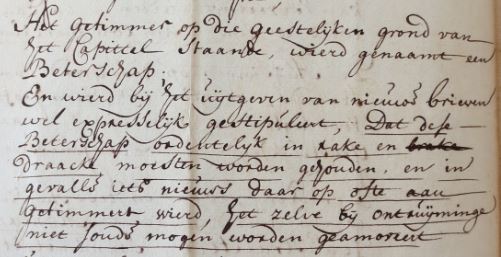 Het Getimmer op die geestelijken grond van
het Capittel Staande, wierd genaamt een
Beterschap,
En wierd bij het uijtgeven van nieuwe brieven
wel expresselijk gestipuleert, Dat dese
Beterschap ordentelijk in rake en brake
draacke moesten worden gehouden, en in
gevalle iets nieuws daar op ofte aan
Getimmert wierd, het zelve by ontruijminge
niet soude mogen worden geamoveert